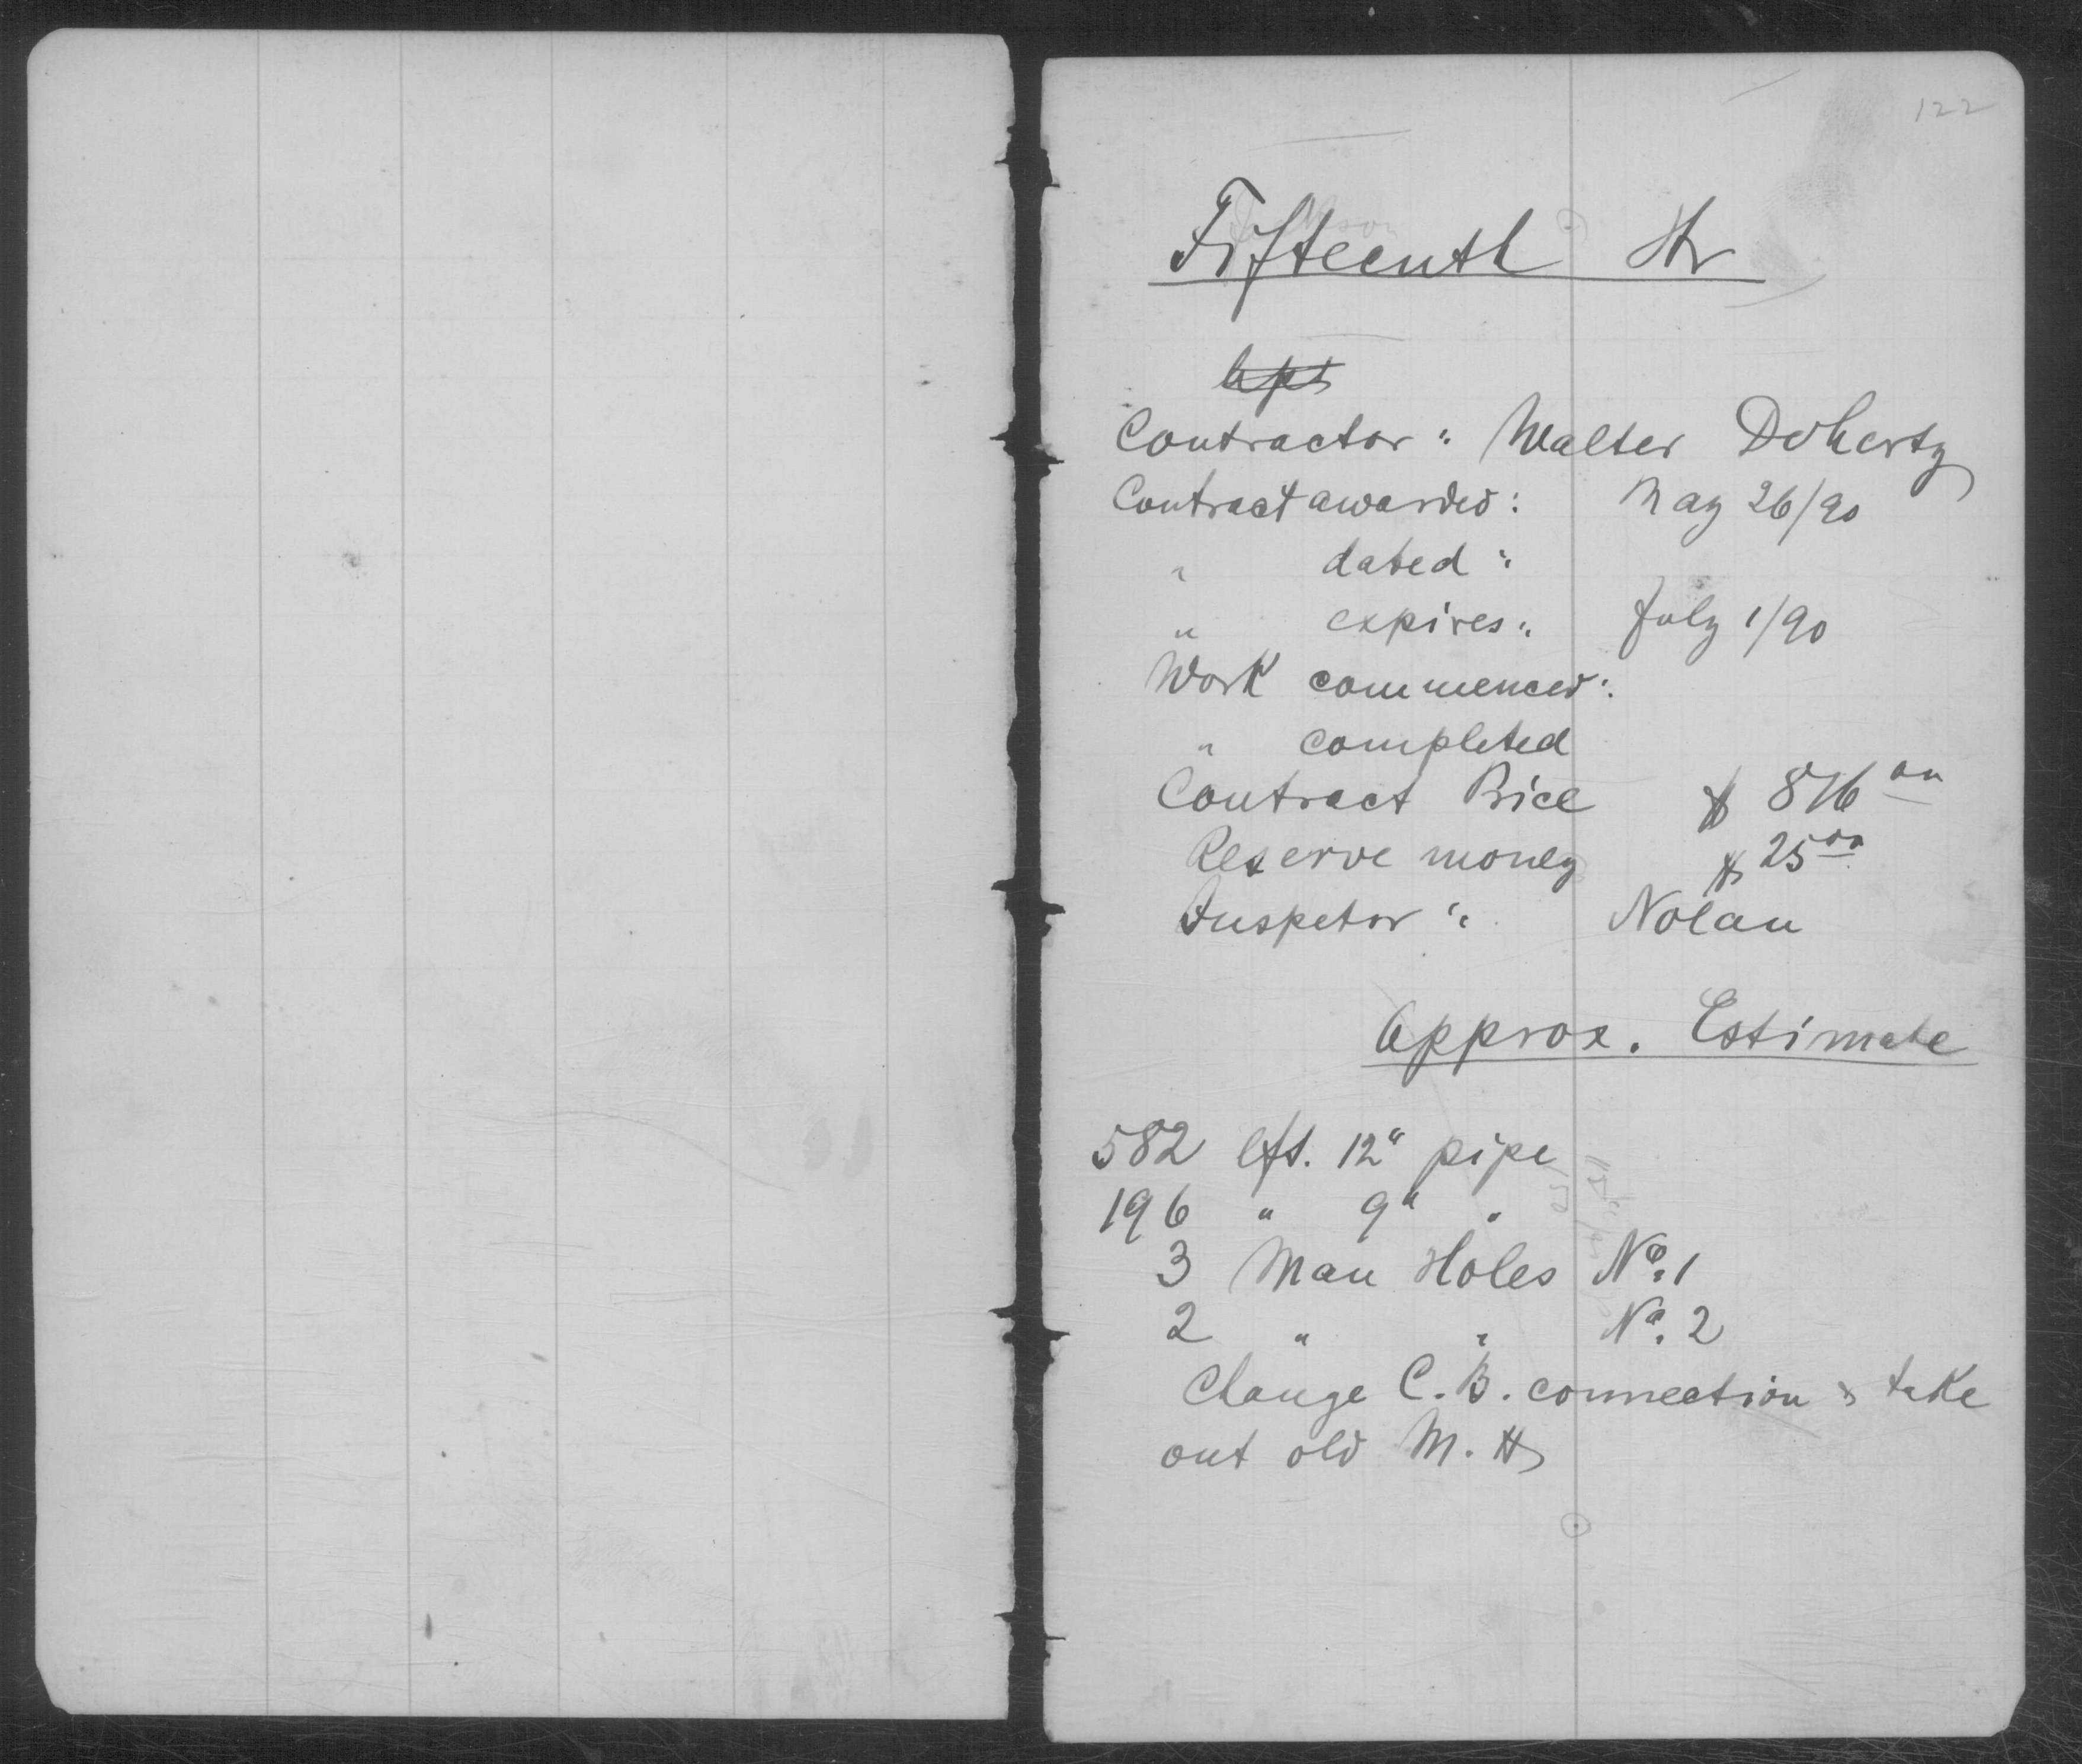 122
Fifteenth Str
Contractor: Walter Doherty
Contract awarded: May 26/90
" dated:
" expires: July 1/90
Work commenced:
" completed
Contract Price $ 876 00
Reserve money $ 25 00
Inspetor: Nolan
Approx. Estimate
582 lft. 12" pipe
196 " 9" "
3 Man Holes No. 1
2 " " No. 2
Change C.B. connection & take
out old M.H